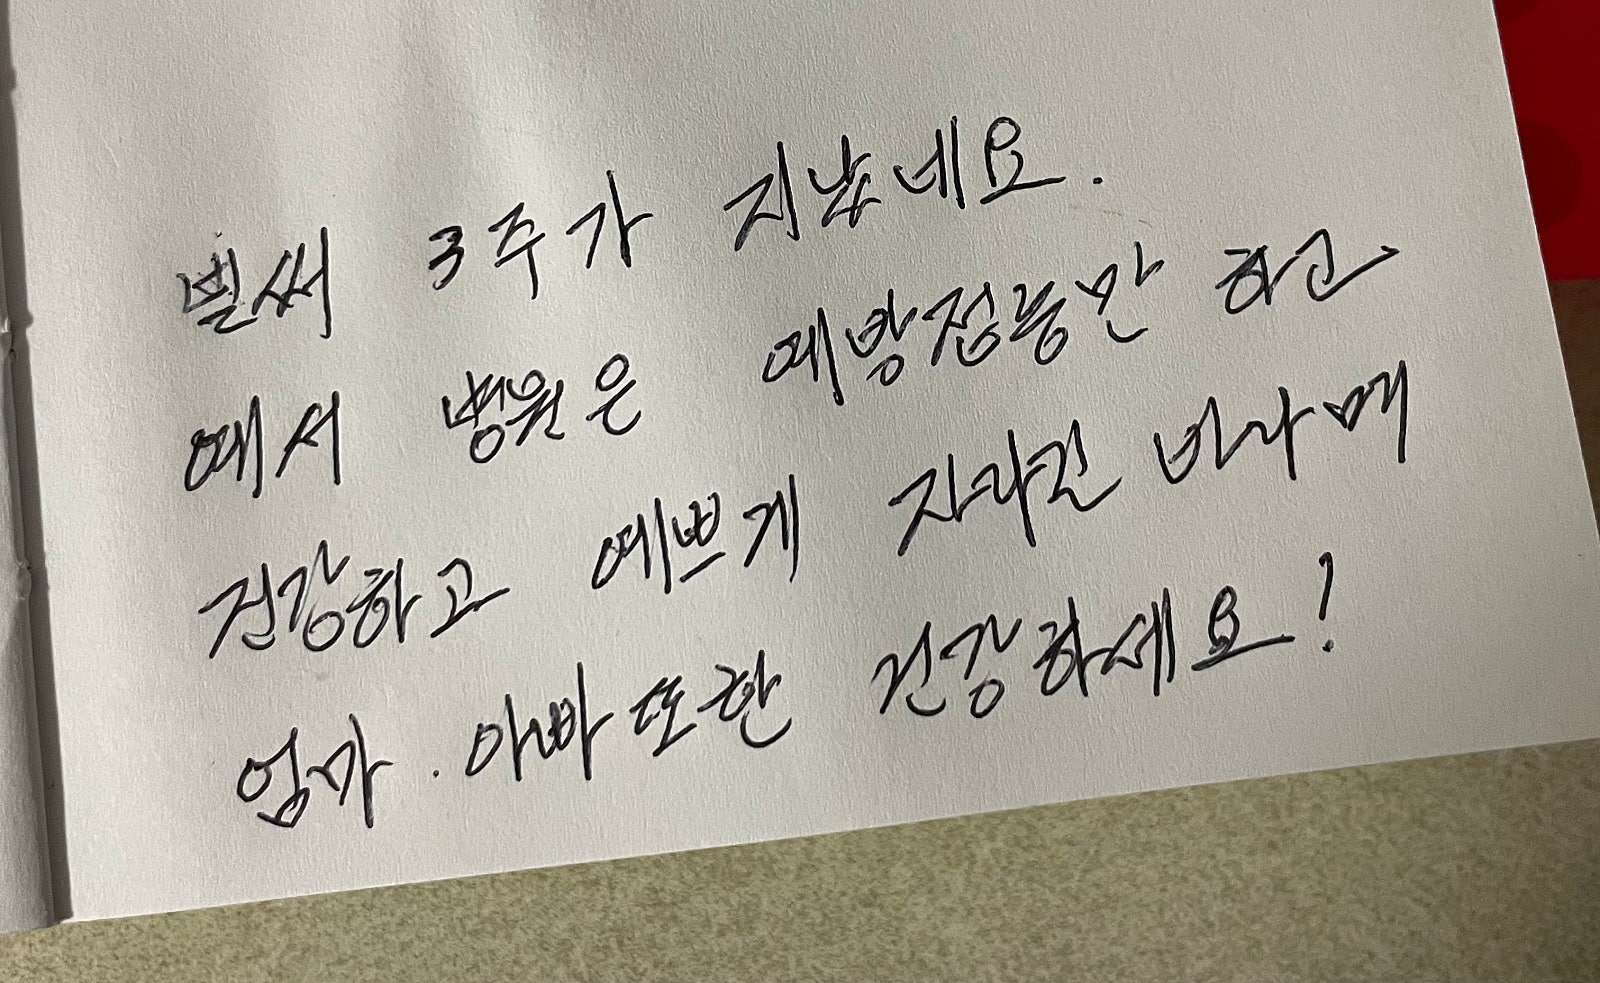 벌써 3주가 지났네요.
예서 병원은 예방접종만 하고
건강하고 예쁘게 자라길 바라며
엄마.아빠 또한 건강하세요!